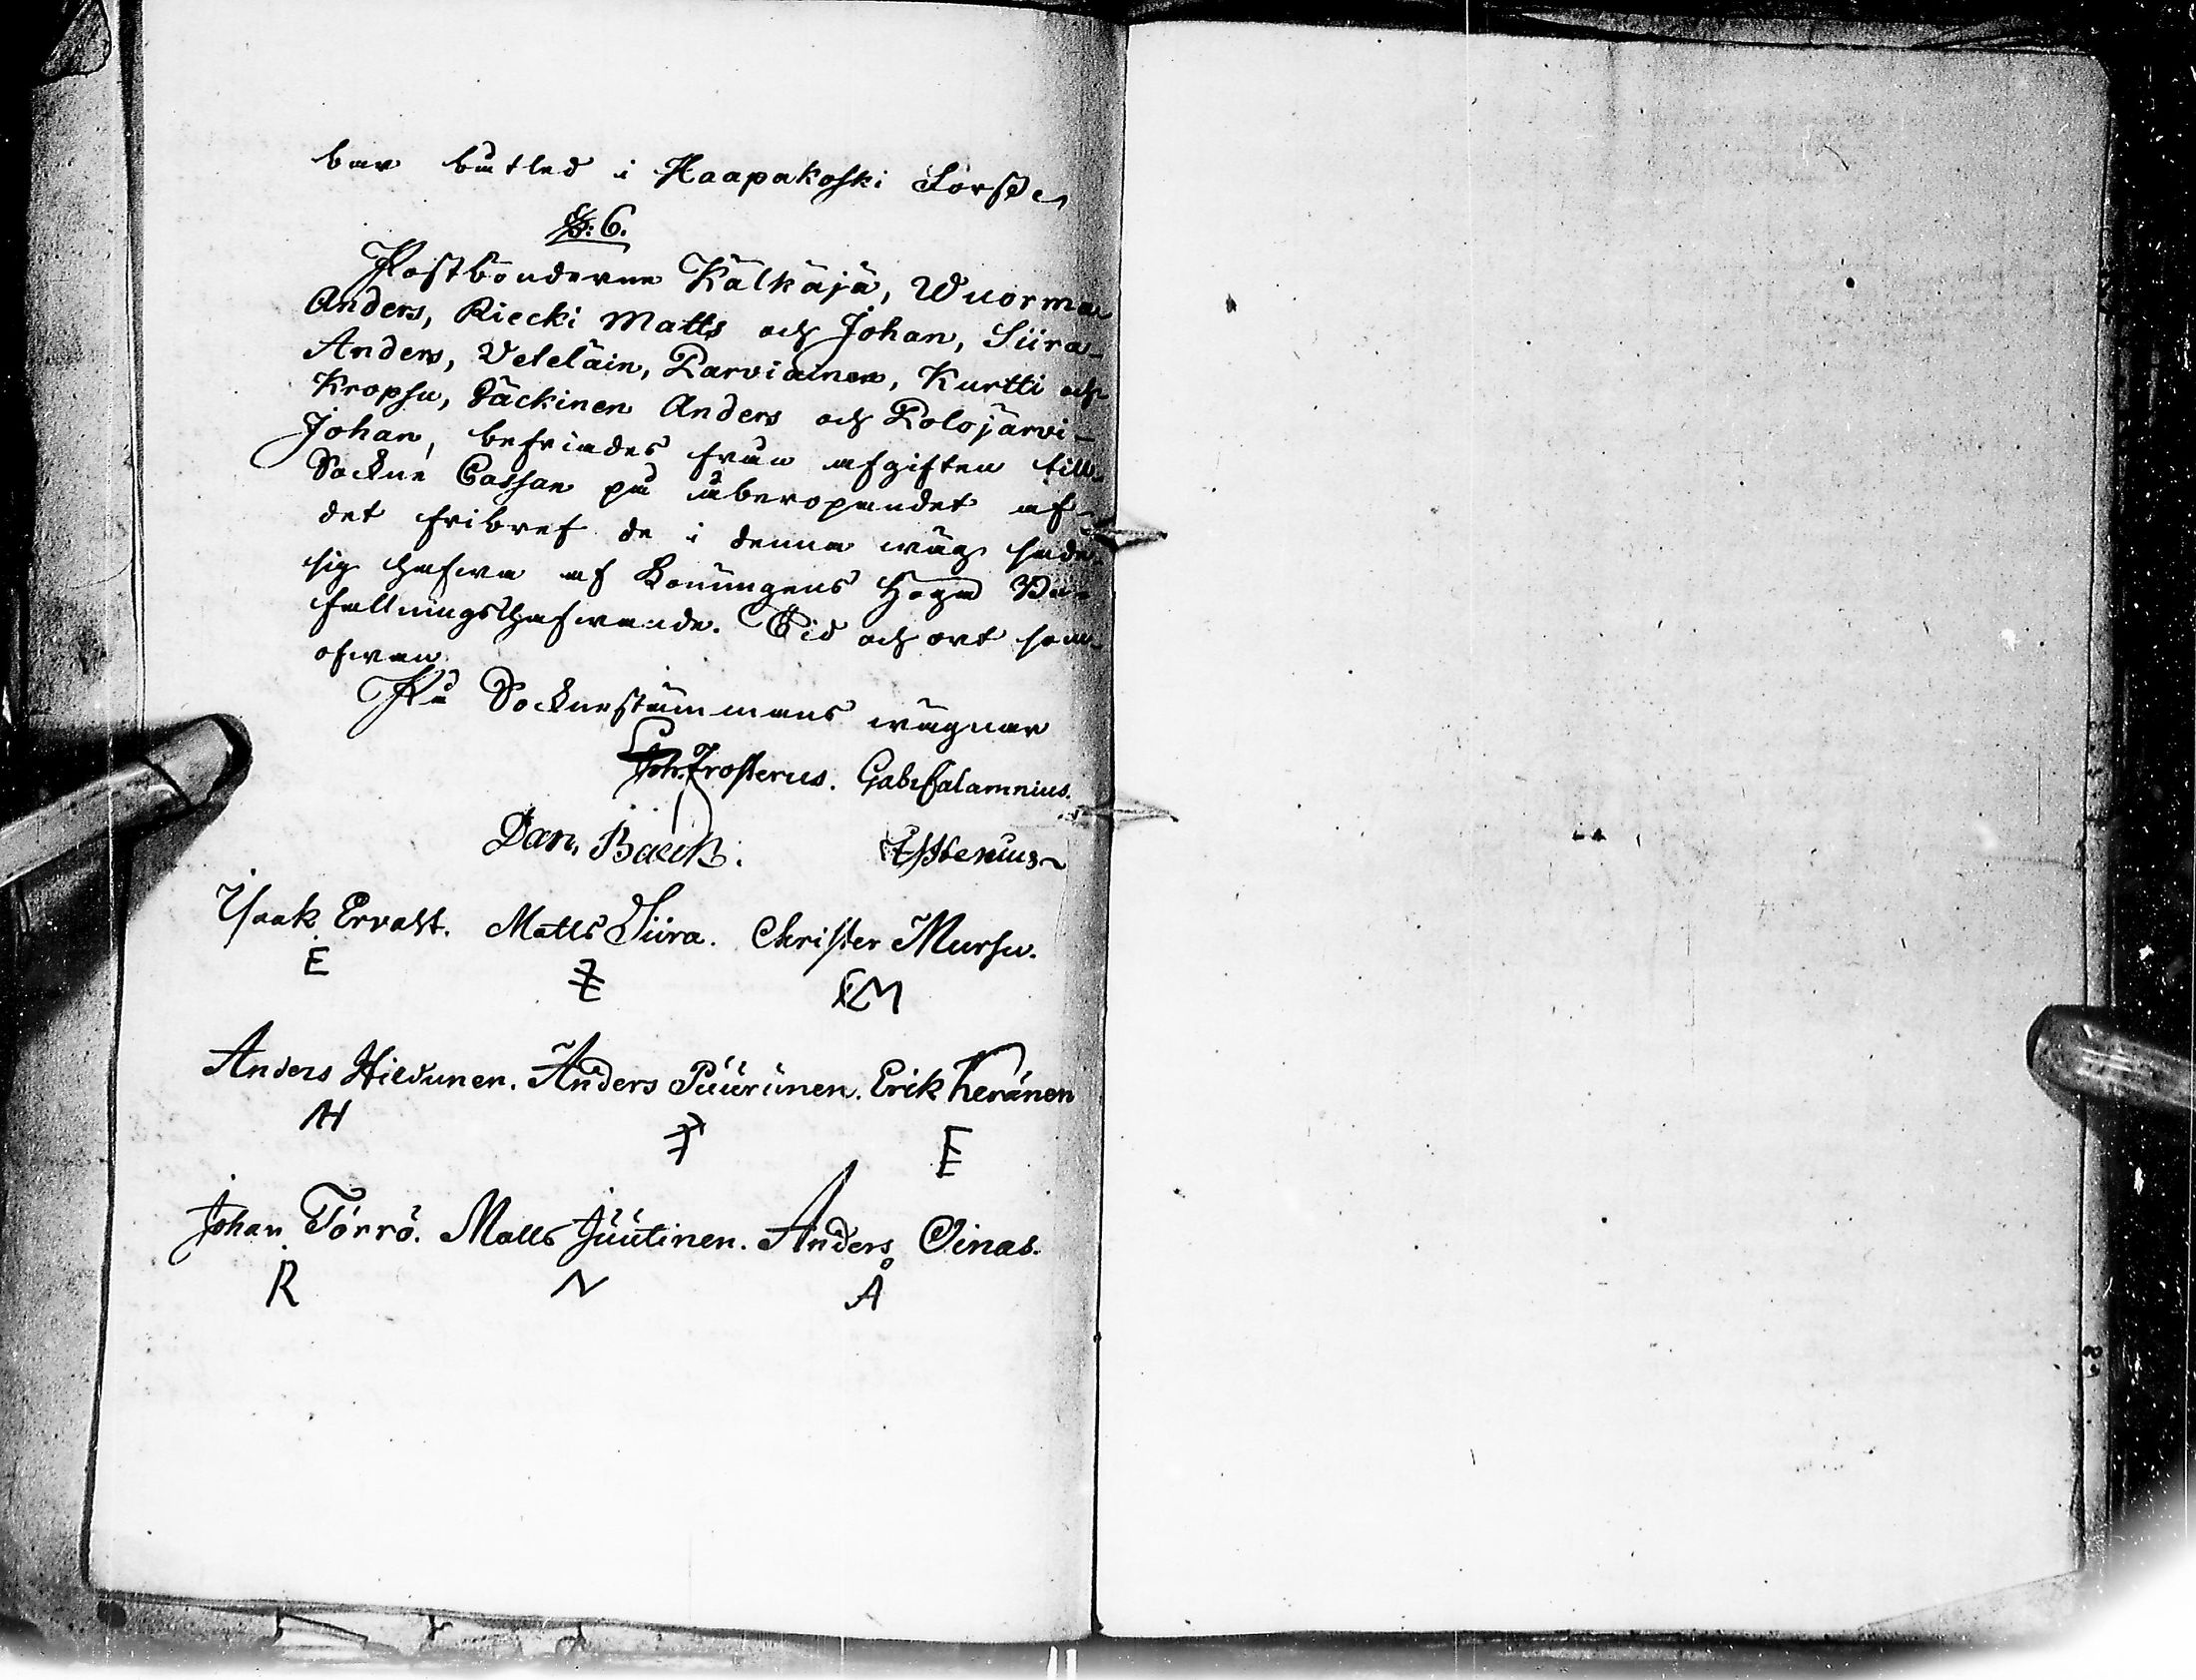 bar båtled i Haapakoski Forss
§: 6.
Postbönderne Kälkäjä, Wuorma
Anders, Riecki Matts och Johan, Siira
Anders, Veteläin, Parviainen, Kurtti och
Kropsu, Säckinen Anders och Polojärvi
Johan, befriades från afgiften till
Sockne Cassan på åberopandet af
det fribref de i denna wäg sade
sig hafwa af Konungens Högad
fallningshafwande. Tid och ort som
ofwan
På Sockenstämmans wägnar
Joh. Frosterus. Gab. Calamnius.
Dan. Baeck.
Isaak Ervast. Matts Siira. Christer Mursu.
E CM
Anders Hildunen. Anders Püürünen. Erik Keränen
AH E
Johan Törrö. Matts Jüütinen. Anders Oinas.
R N Å